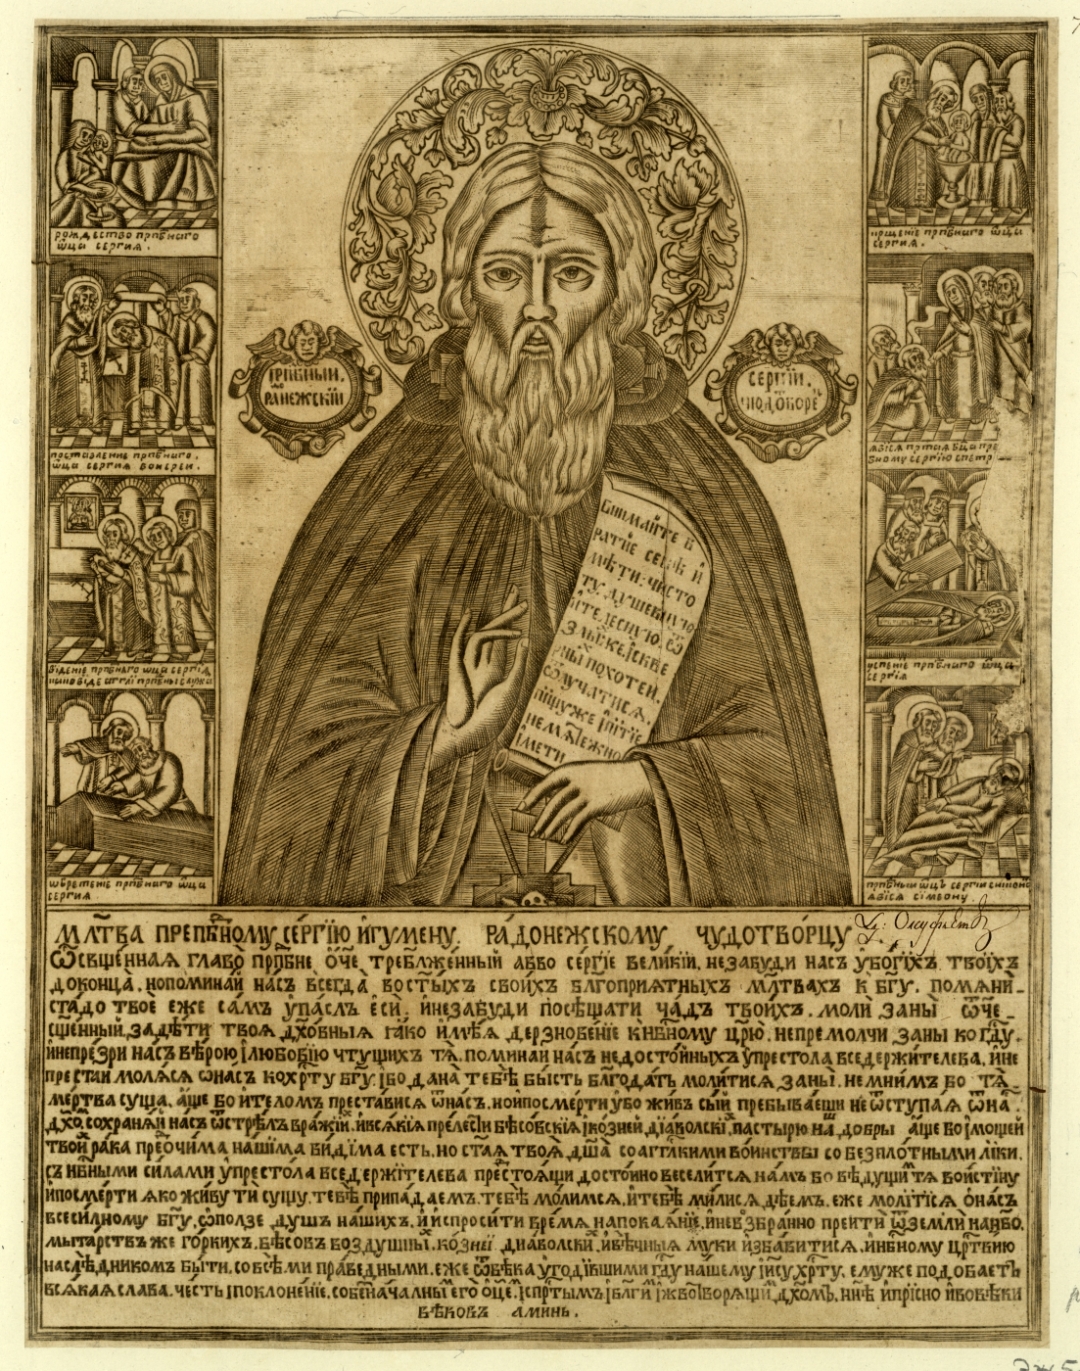 рождество прпбнаго
ѿца сергия.
крщение прпбнаго ѿца
сергия.
поставление прпбнаго.
ѿца сергия воиереи.
явїся пртая бца пре
бному сергїю спетр
бїденїе прпбнаго ѿца сергїя
успенїе прпбнаго ѿца
сергїя
ѡбретенїе прпбнаго ѿца
сергия.
прпбныи ѿцъ сергїи
явїся сїмѣону.
ПРПБНЫИ.
РАНЕЖСКЇЙ
СЕРГЇЙ
ЧЮДОВОРЕ
Внимайте б
ратїе себѣ й
мѣти: чисто
ту. душевную
ителесную. ѿ
злыѯ же скве
рны похотей.
ѿлучатися.
пищуже ипитїе
немятежно
імети
МЛТВА ПРЕПБНОМУ СЕ́РГЇЮ И́ГУМЕНУ. РА́ДОНЕЖСКОМУ, ЧУДОТВО́РЦУ
Ѿсвщенная главо прпбне ѻ́че. треблженный авво се́ргїе великїй. незабуди насъ убогїхъ твоїхъ
доконца. нопоминай насъ всегда востыхъ своихъ блгоприятныхъ мл́твахъ к бгу. помяни
ста́до твое́ еже са́мъ упа́слъ ѐси̇. инезабуди посѣщати ча́дъ твоихъ. моли заны̀ ѿче
сщенный. за дѣти твоя дхо́вныя яко имѣя дерзнове́нїе кнбному црю̀. непремолчи заны ко гду.
инепре́зри насъ вѣрою і любовїю чтущихъ тя̀. поминай насъ недостойныхъ упрестола вседержителева. ине
престаи моляся ѡнасъ кохрту бгу. їбо дана̀ тебѣ бысть блгода́ть молитися заны̀. немнимъ бо тя̀
мертва суща. аще бо ителомъ преставися ѿнасъ. ноипосмерти убо живъ сый пребываеши не ѿступая ѿна.
дхо. сохраняй насъ ѿстрелъ вражїй. ивсякїя прелести бѣсовскїя їкозней дїаволскї. пастырю на добры аще бо імощей
твоихъ рака преѻчима нашїма видїма есть. но стая твоя дша соагг҃лскими воинствы со безплотными лики.
съ нбными силами упрестола вседержїтелева предстоящи достоино веселится. намъ бо вѣдущи тя воистину
ипосмерти яко живу ти сущу. тебѣ припадаемъ. тебѣ молимся. итебѣ милися дѣемъ. еже молїтїся онасъ
всеси́лному бгу. ѡползе душъ нашихъ. й испросити время напокаянїе. иневзбранно преити ѿземли нанбо.
мытарствъ же горкихъ. бѣсовъ воздушны. козней дїаволски. ивѣчныя муки избавитися. инбному црствїю
наслѣдникомъ быти. со всѣми праведными. еже ѿвѣка угодившими гду нашему іису хрту. емуже подобаетъ
всякая слава. честь іпоклоненїе. собезначалны его оце. іспртымъ іблги іживотворящи дхомъ. нн҃ѣ ипрїсно ивовѣки
вѣковъ аминь.